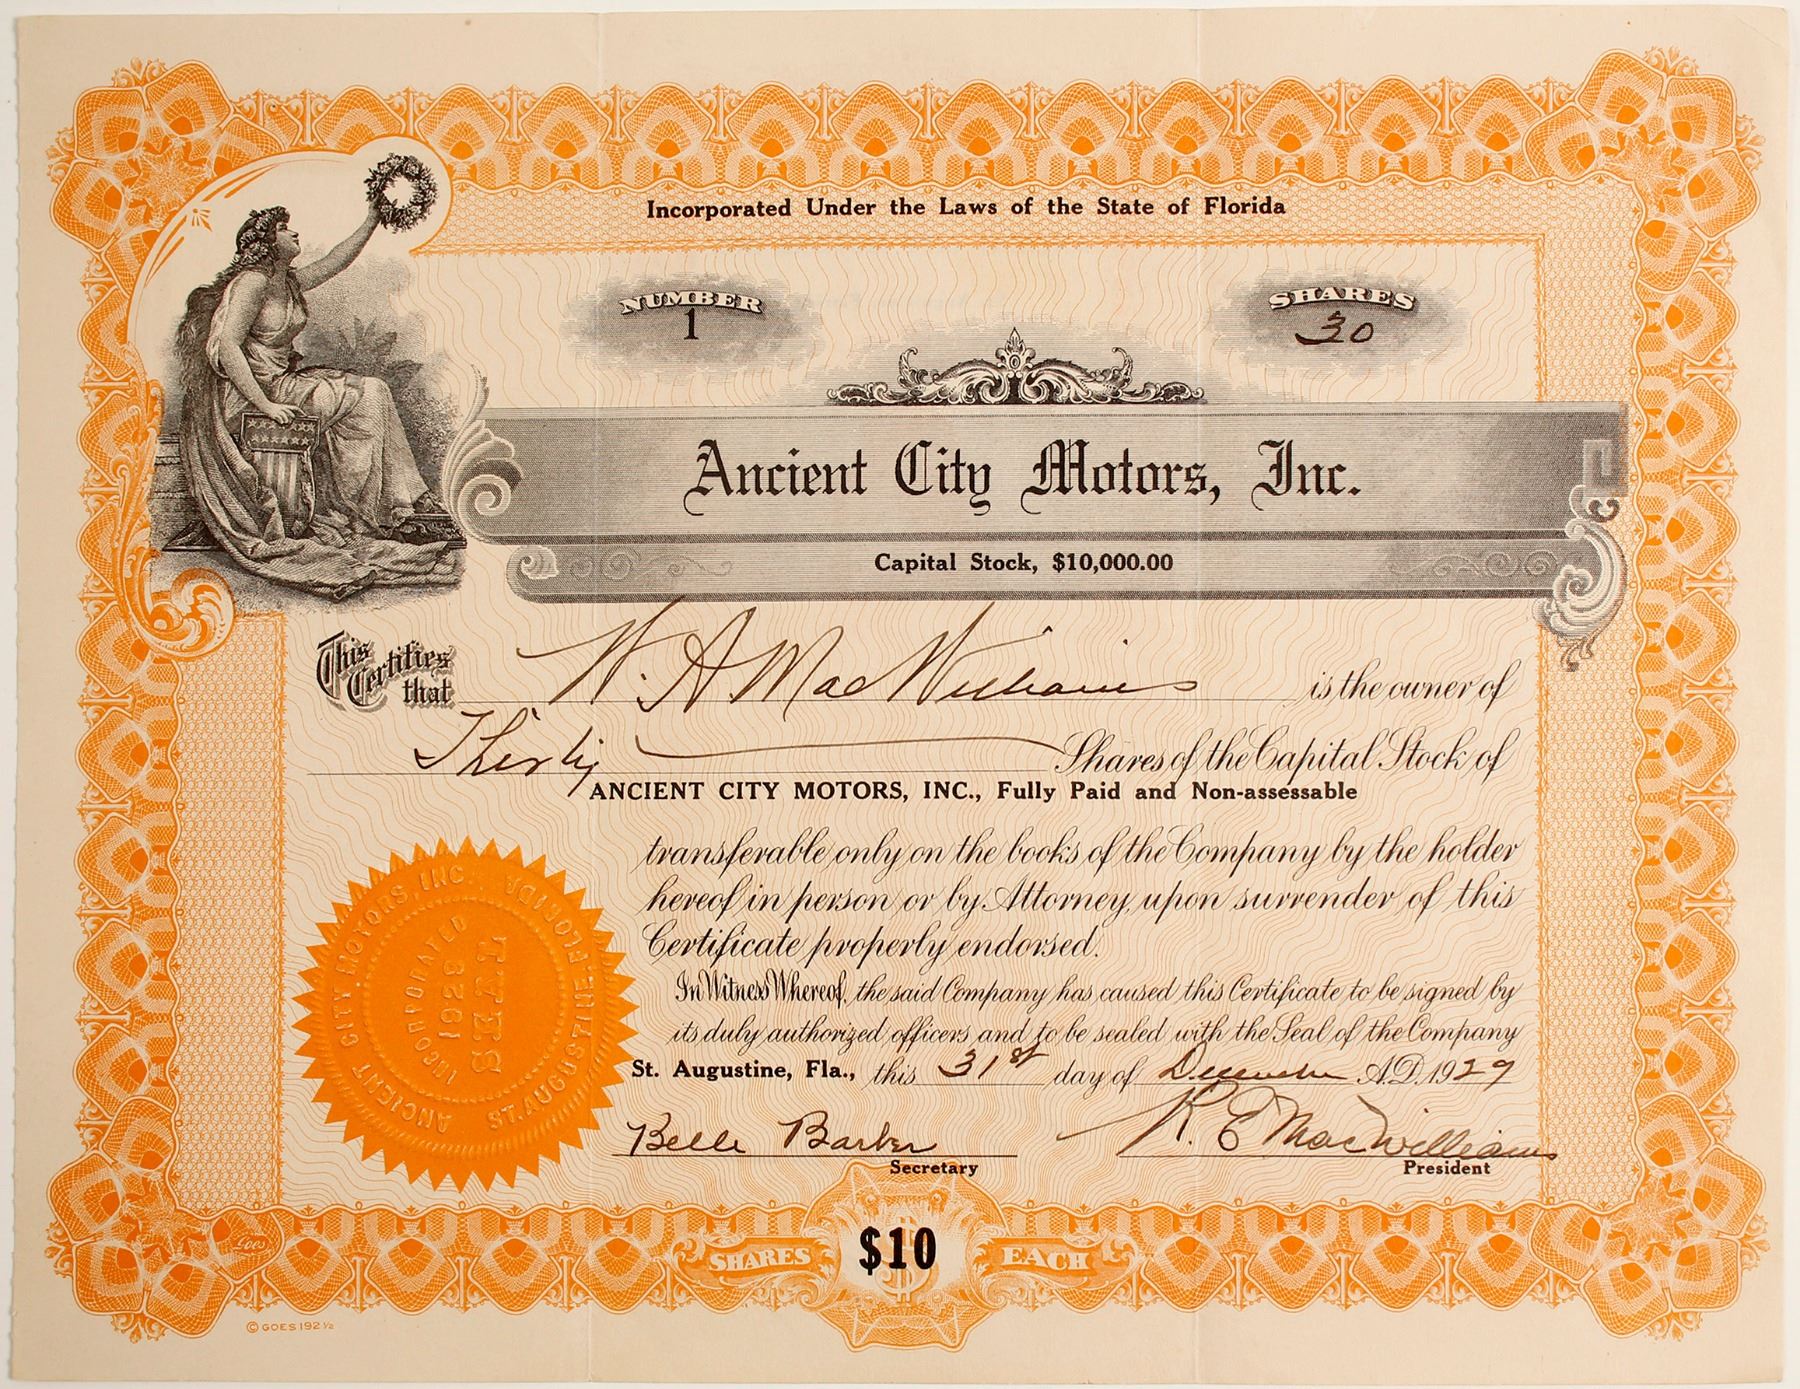 Incorporated Under the Laws of the State of Florida
NUMBER
1
SHARES
30
Ancient City Motors, Inc.
Capital Stock, $10,000.00
This Certifies that W. A. MacWilliams is the owner of
Thirty Shares of the Capital Stock of
ANCIENT CITY MOTORS, INC., Fully Paid and Non-assessable
transferable only on the books of the Company by the holder
hereof in person or by Attorney, upon surrender of this
Certificate properly endorsed.
In Witness Whereof, the said Company has caused this Certificate to be signed by
its duly authorized officers and to be sealed with the Seal of the Company
St. Augustine, Fla., this 31st day of December A.D. 1929
Belle Barker
Secretary
R. E. MacWilliams
President
ANCIENT CITY MOTORS, INC.
ST. AUGUSTINE - FLORIDA
INCORPORATED
1928
SEAL
SHARES $10 EACH
Goes
© GOES 192 ½